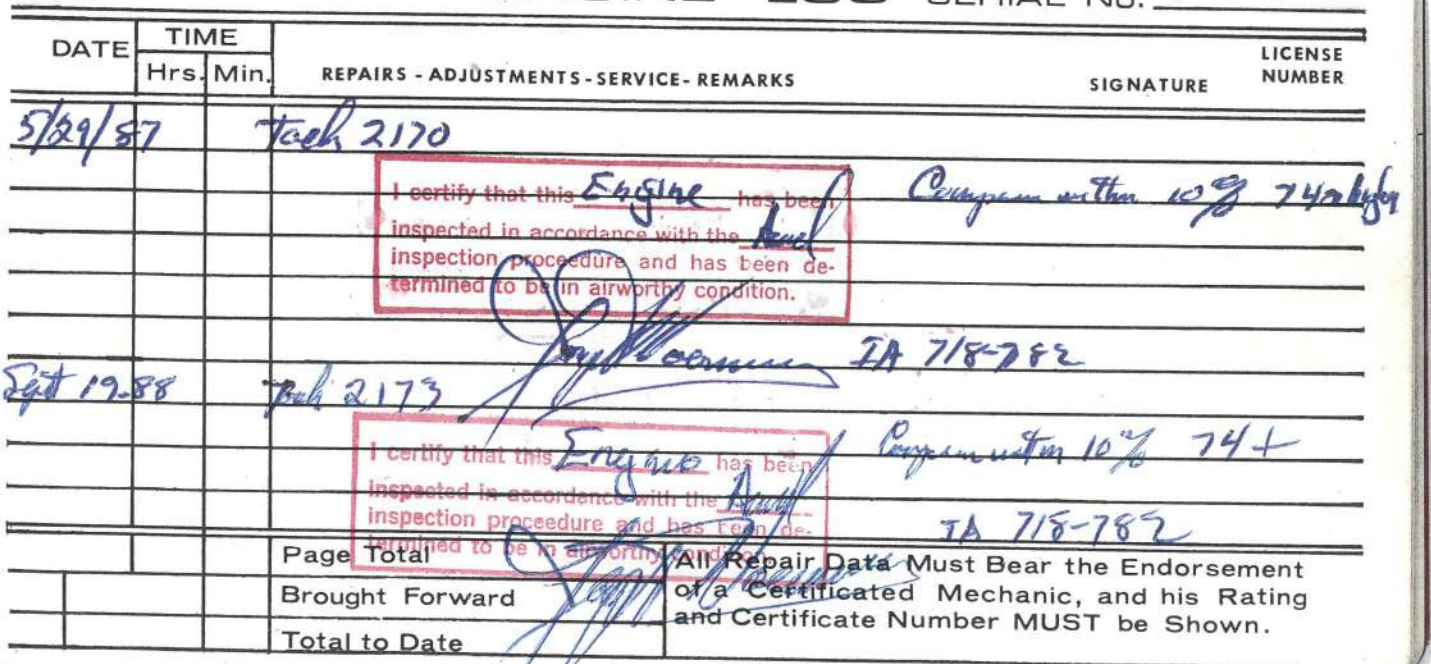 SERIAL No.
DATE TIME Hrs. Min. REPAIRS - ADJUSTMENTS - SERVICE - REMARKS SIGNATURE LICENSE NUMBER
5/29/87 Tach 2170
I certify that this Engine has been
inspected in accordance with the
inspection proceedure and has been de-
termined to be in airworthy condition.
within 10% 74
IA 718-782
Sept 19-88 Tach 2173
I certify that this Engine has been
inspected in accordance with the
inspection proceedure and has been de-
termined to be in airworthy condition.
10% 74+
IA 718-782
Page Total
Brought Forward
Total to Date
All Repair Data Must Bear the Endorsement
of a Certificated Mechanic, and his Rating
and Certificate Number MUST be Shown.